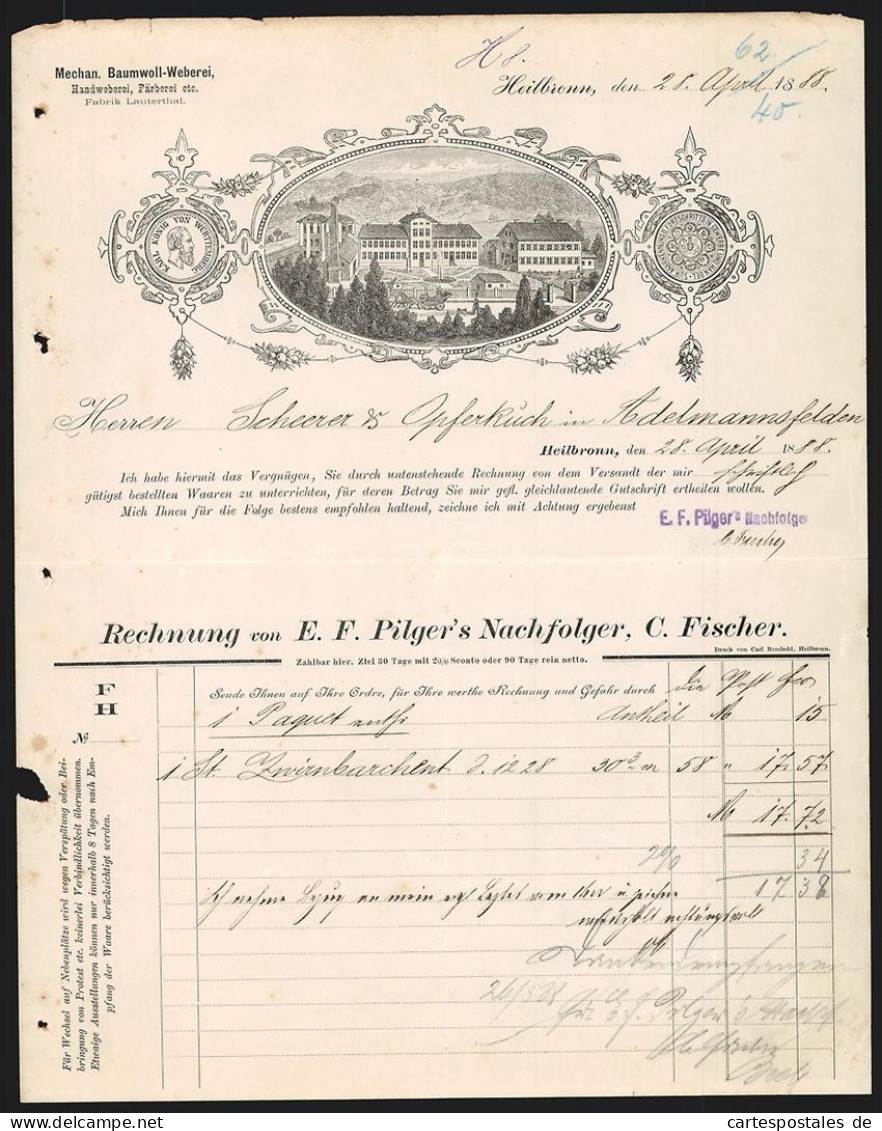 H 8.
62
Mechan. Baumwoll-Weberei,
Handweberei, Färberei etc.
Fabrik Lauterthal.
Heilbronn, den 28. April 1888.
40
KARL KÖNIG VON WÜRTTEMBERG
Herren Scheerer & Opferkuch in Adelmannsfelden
Heilbronn, den 28. April 1888.
Ich habe hiermit das Vergnügen, Sie durch untenstehende Rechnung von dem Versandt der mir schriftlich
gütigst bestellten Waaren zu unterrichten, für deren Betrag Sie mir gefl. gleichlautende Gutschrift ertheilen wollen.
Mich Ihnen für die Folge bestens empfohlen haltend, zeichne ich mit Achtung ergebenst
E. F. Pilger's Nachfolge
C. Fischer
Rechnung von E. F. Pilger's Nachfolger, C. Fischer.
Druck von Carl Rembold, Heilbronn.
Zahlbar hier. Ziel 30 Tage mit 2% Sconto oder 90 Tage rein netto.
F
H
№
Sende Ihnen auf Ihre Ordre, für Ihre werthe Rechnung und Gefahr durch die Post fro
1 Paquet enth: Antheil M 15
1 St. Zwirnbarchent d. 1228 30³ m 58 " 17 57
M 17. 72
2% 34
17 38
Ich nehme Bezug an mein
26/5 88
Pilger's
Für Wechsel auf Nebenplätze wird wegen Verspätung oder Bei-
bringung von Protest etc. keinerlei Verbindlichkeit übernommen.
Etwaige Ausstellungen können nur innerhalb 8 Tagen nach Em-
pfang der Waare berücksichtigt werden.
cartespostales de